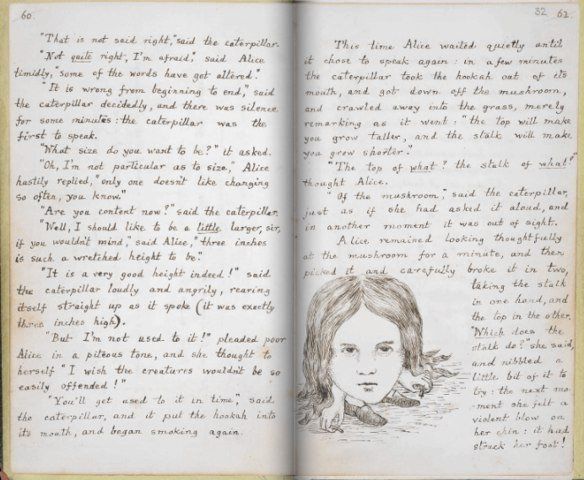 60.
"That is not said right," said the caterpillar.
"Not quite right, I'm afraid," said Alice
timidly, "some of the words have got altered."
"It is wrong from beginning to end," said
the caterpillar decidedly, and there was silence
for some minutes: the caterpillar was the
first to speak.
"What size do you want to be?" it asked.
"Oh, I'm not particular as to size," Alice
hastily replied, "only one doesn't like changing
so often, you know."
"Are you content now?" said the caterpillar.
"Well, I should like to be a little larger, sir,
if you wouldn't mind," said Alice, "three inches
is such a wretched height to be."
"It is a very good height indeed!" said
the caterpillar loudly and angrily, rearing
itself straight up as it spoke (it was exactly
three inches high).
"But I'm not used to it!" pleaded poor
Alice in a piteous tone, and she thought to
herself "I wish the creatures wouldn't be so
easily offended!"
"You'll get used to it in time," said
the caterpillar, and it put the hookah into
its mouth, and began smoking again.
32 62.
This time Alice waited quietly until
it chose to speak again: in a few minutes
the caterpillar took the hookah out of its
mouth, and got down off the mushroom,
and crawled away into the grass, merely
remarking as it went: "the top will make
you grow taller, and the stalk will make
you grow shorter."
"The top of what? the stalk of what?"
thought Alice.
"Of the mushroom," said the caterpillar,
just as if she had asked it aloud, and
in another moment it was out of sight.
Alice remained looking thoughtfully
at the mushroom for a minute, and then
picked it and carefully broke it in two,
taking the stalk
in one hand, and
the top in the other.
"Which does the
stalk do?" she said,
and nibbled a
little bit of it to
try: the next mo-
ment she felt a
violent blow on
her chin: it had
struck her foot!